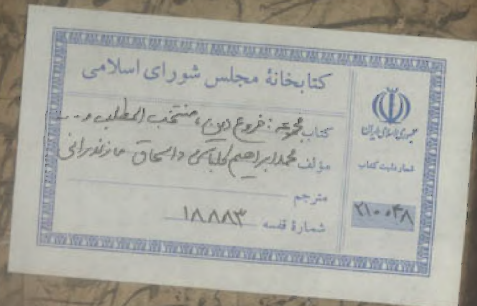 کتابخانهٔ مجلس شورای اسلامی
کتاب مجموعه: فروع دین، منتخب المطلب و ...
مؤلف محمد ابراهیم کلباسی و اسحاق مازندرانی
مترجم
شمارهٔ قفسه ۱۸۸۸۳
جمهوری اسلامی ایران
شماره ثبت کتاب
۲۱۰۰۳۸